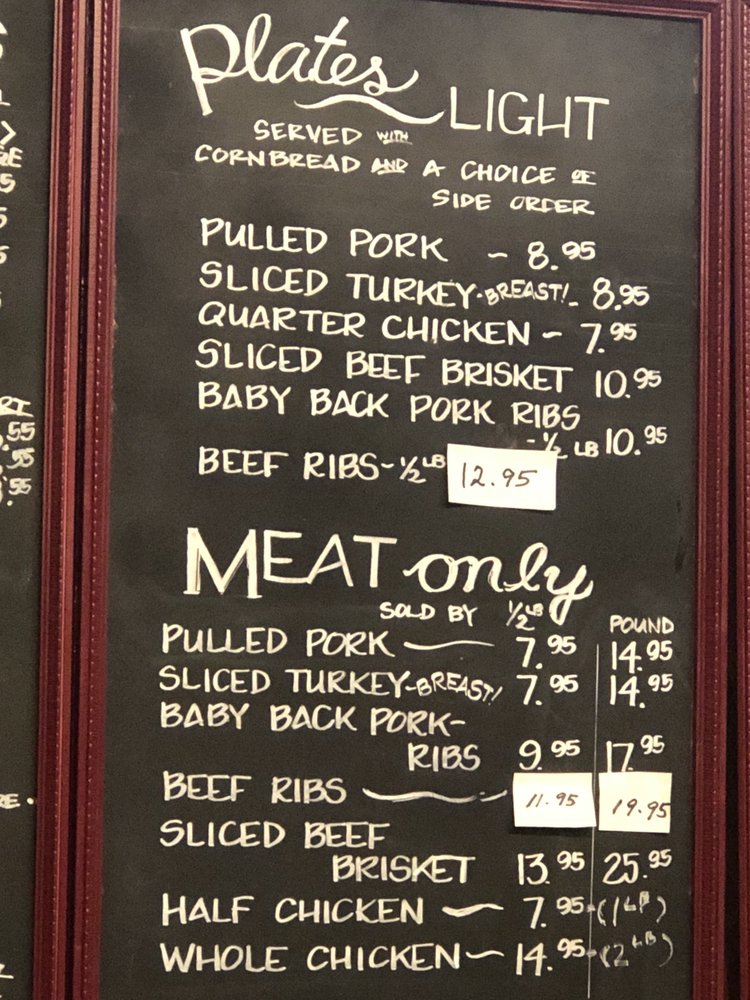 Plates LIGHT
SERVED WITH
CORNBREAD AND A CHOICE OF
SIDE ORDER
PULLED PORK - 8.95
SLICED TURKEY-BREAST!- 8.95
QUARTER CHICKEN - 7.95
SLICED BEEF BRISKET 10.95
BABY BACK PORK RIBS
-½ LB 10.95
BEEF RIBS-½ LB 12.95
MEAT only
SOLD BY ½ LB POUND
PULLED PORK — 7.95 14.95
SLICED TURKEY-BREAST! 7.95 14.95
BABY BACK PORK-
RIBS 9.95 17.95
BEEF RIBS — 11.95 19.95
SLICED BEEF
BRISKET 13.95 25.95
HALF CHICKEN - 7.95-(1 LB)
WHOLE CHICKEN - 14.95-(2 LB)
.55
.55
.55